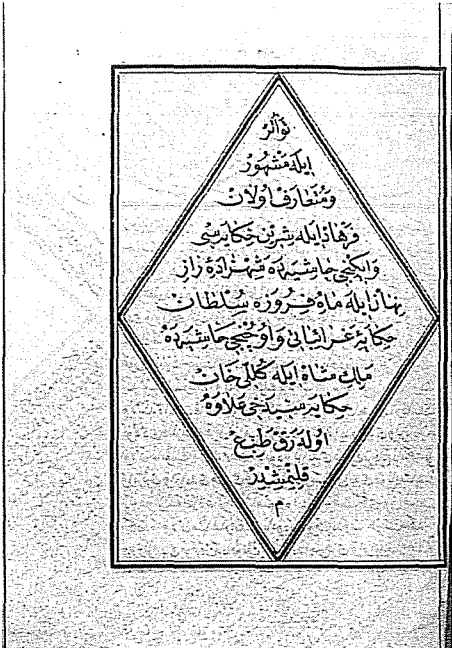 تواتر
ايله مشهور
ومتعارف اولان
فرهاد ايله شرين حكايه سى
و ايكنجى حاشيه ده شهزاده راز
نهان ايله ماه فروزه سلطان
حكايۀ غرائباتى و اوچنجى حاشيه ده
ملك شاه ايله كللى خان
حكايه سيدخى علاوه
اوله رق طبع
قلنمشدر
م